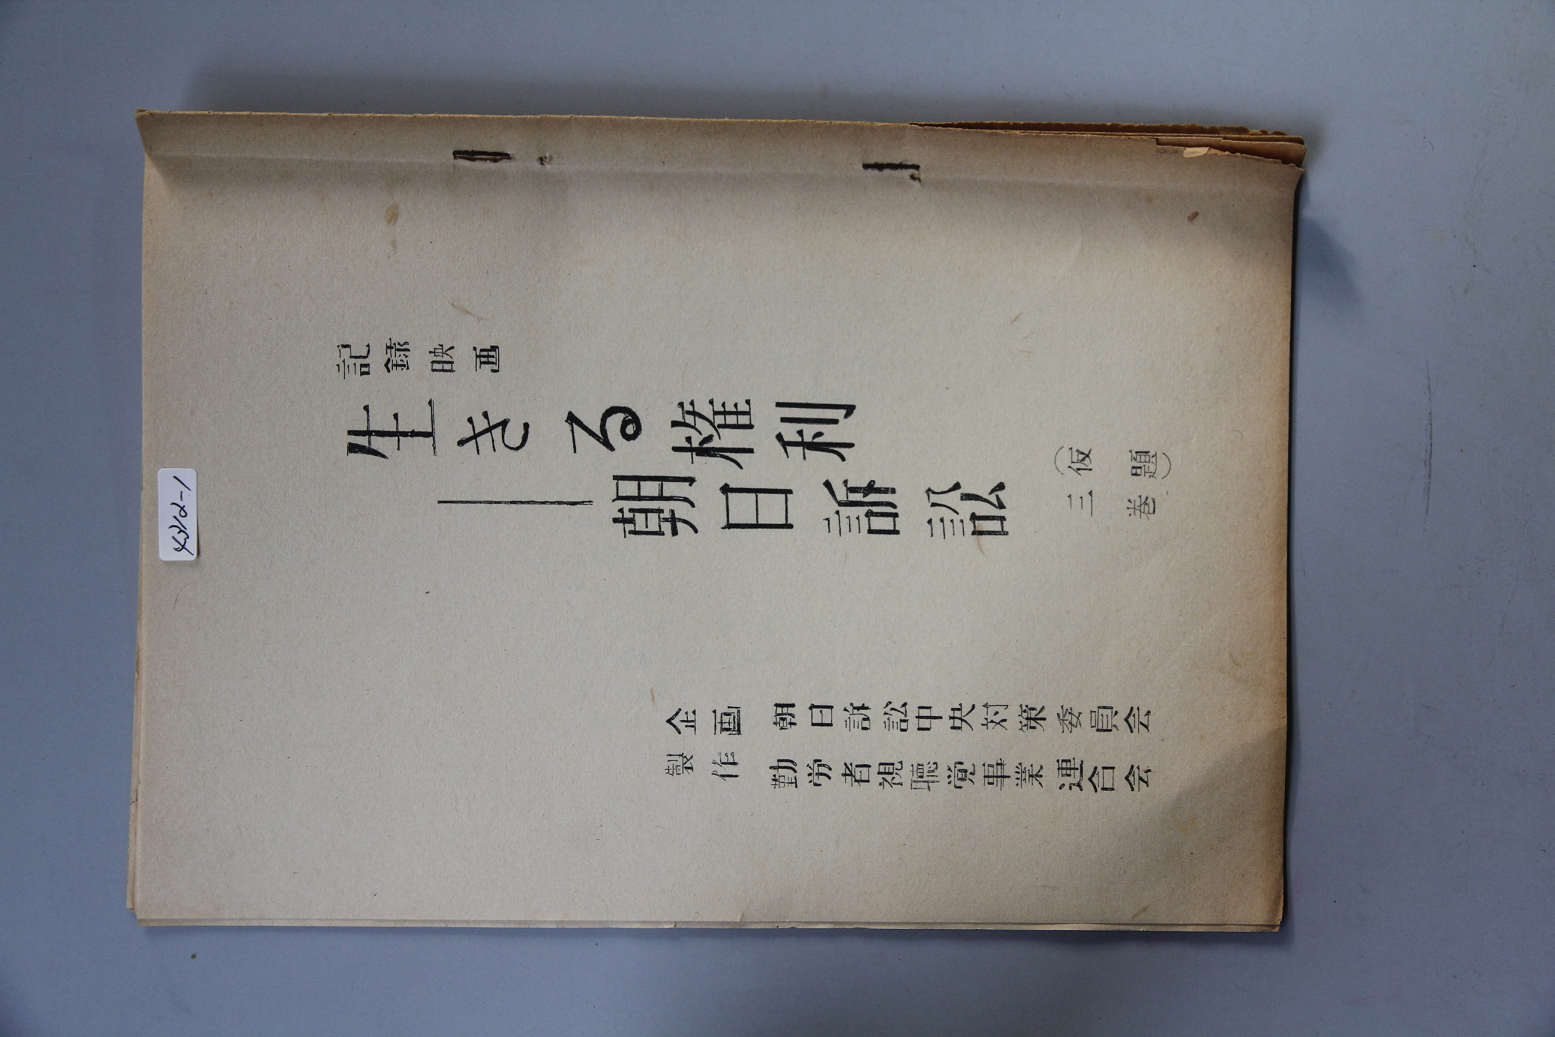 記録映画
生きる権利
――朝日訴訟
(仮題)
三巻
企画 朝日訴訟中央対策委員会
製作 勤労者視聴覚事業連合会